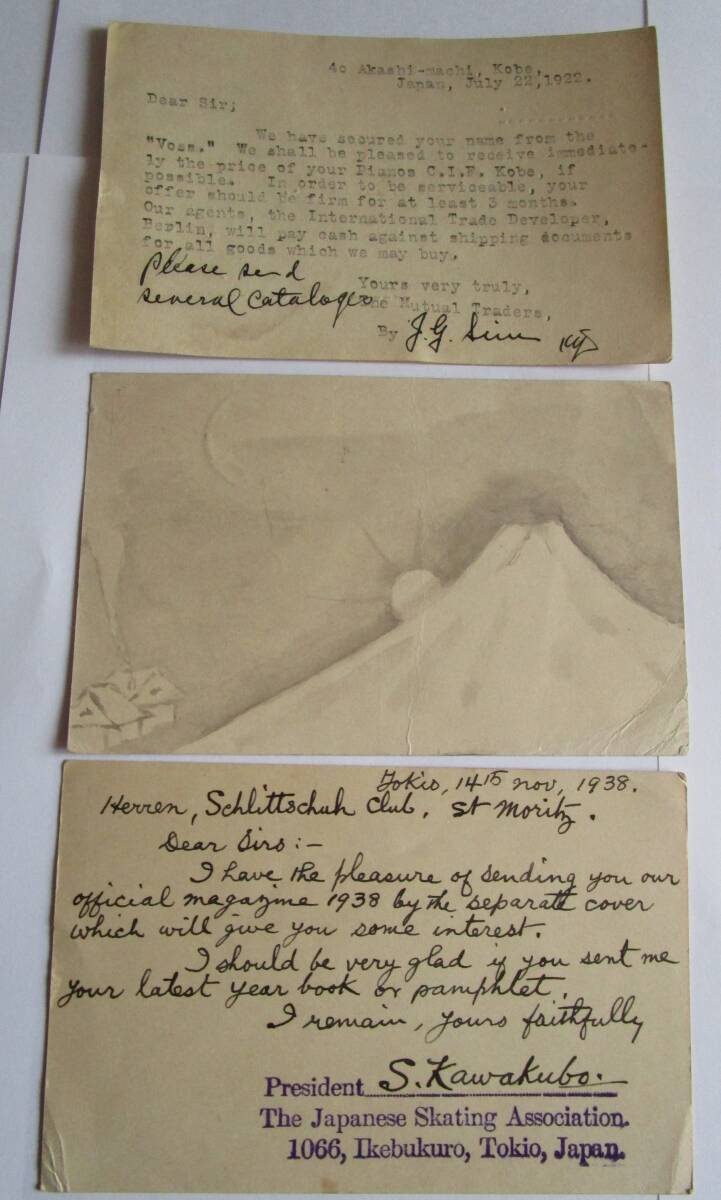 40 Akashi-machi, Kobe,
Japan, July 22, 1922.
Dear Sir;
We have secured your name from the
"Voss." We shall be pleased to receive immediate-
ly the price of your Pianos C.I.F. Kobe, if
possible. In order to be serviceable, your
offer should be firm for at least 3 months.
Our agents, the International Trade Developer,
Berlin, will pay cash against shipping documents
for all goods which we may buy.
Please send
several Catalogs
Yours very truly,
The Mutual Traders,
By J.G.
Tokio, 14th nov, 1938.
Herren, Schlittschuh Club, St Moritz.
Dear Sirs:-
I have the pleasure of sending you our
official magazine 1938 by the separate cover
which will give you some interest.
I should be very glad if you sent me
your latest year book or pamphlet.
I remain, yours faithfully
President S. Kawakubo.
The Japanese Skating Association.
1066, Ikebukuro, Tokio, Japan.